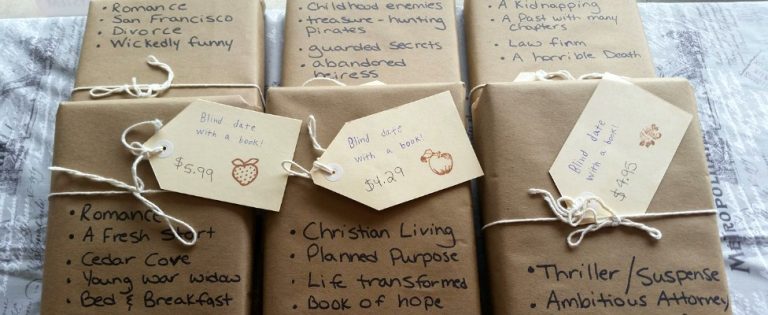 • Romance
• San Francisco
• Divorce
• Wickedly funny
• Childhood enemies
• treasure-hunting
pirates
• guarded secrets
• abandoned
heiress
• A Kidnapping
• A Past with many
chapters
• Law firm
• A horrible Death
Blind date
with a book!
$5.99
• Romance
• A Fresh Start
• Cedar Cove
• Young war widow
• Bed & Breakfast
Blind date
with a book!
$4.29
• Christian Living
• Planned Purpose
• Life transformed
• Book of hope
Blind date
with a book!
$4.95
• Thriller/Suspense
• Ambitious Attorney